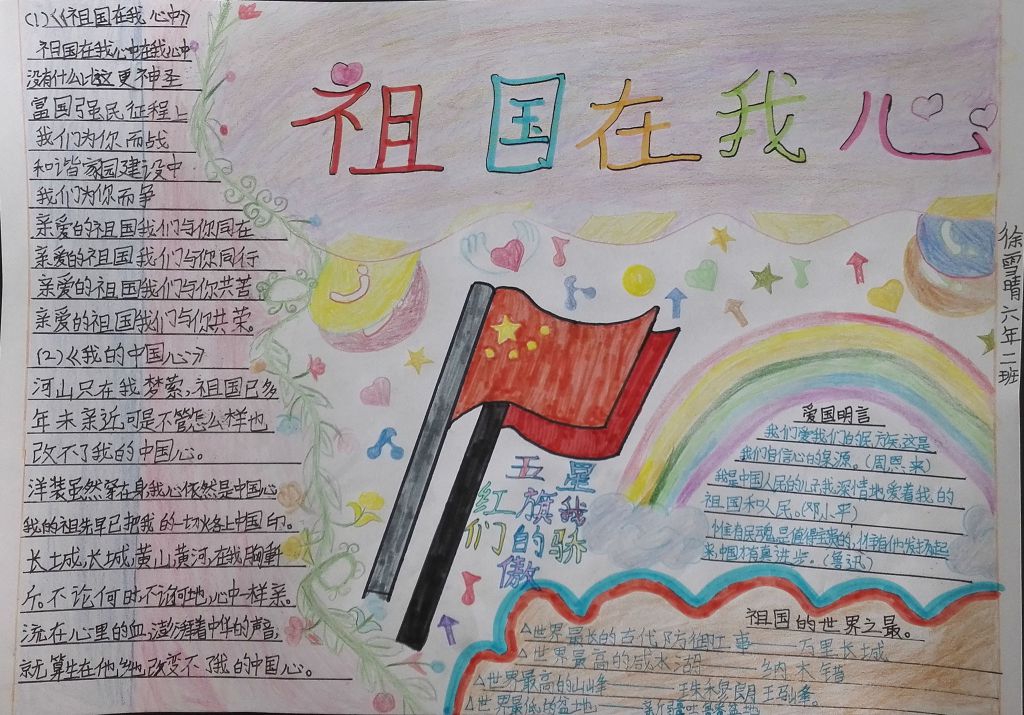 祖国在我心
(1)《祖国在我心中》
祖国在我心中在我心中
没有什么比这更神圣
富国强民征程上
我们为你而战
和谐家园建设中
我们为你而争
亲爱的祖国我们与你同在
亲爱的祖国我们与你同行
亲爱的祖国我们与你共苦
亲爱的祖国我们与你共荣。
(2)《我的中国心》
河山只在我梦萦,祖国已多
年未亲近,可是不管怎么样也
改不了我的中国心。
洋装虽然穿在身我心依然是中国心
我的祖先早已把我的一切烙上中国印。
长城,长城,黄山,黄河,在我胸
斤。不论何时不论何地,心中一样亲。
流在心里的血,澎湃着中华的声音,
就算生在他乡也改变不了我的中国心。
五星
红旗我
们的骄
傲
爱国明言
我们爱我们的民族,这是
我们自信心的泉源。(周恩来)
我是中国人民的儿子我深情地爱着我的
祖国和人民。(邓小平)
惟有民魂是值得宝贵的,惟有他发扬起
来,中国才有真进步。(鲁迅)
祖国的世界之最。
△世界最长的古代防御工事——万里长城
△世界最高的咸水湖——纳木错
△世界最高的山峰——珠穆朗玛峰。
△世界最低的盆地——新疆吐鲁番盆地
徐雪晴六年二班